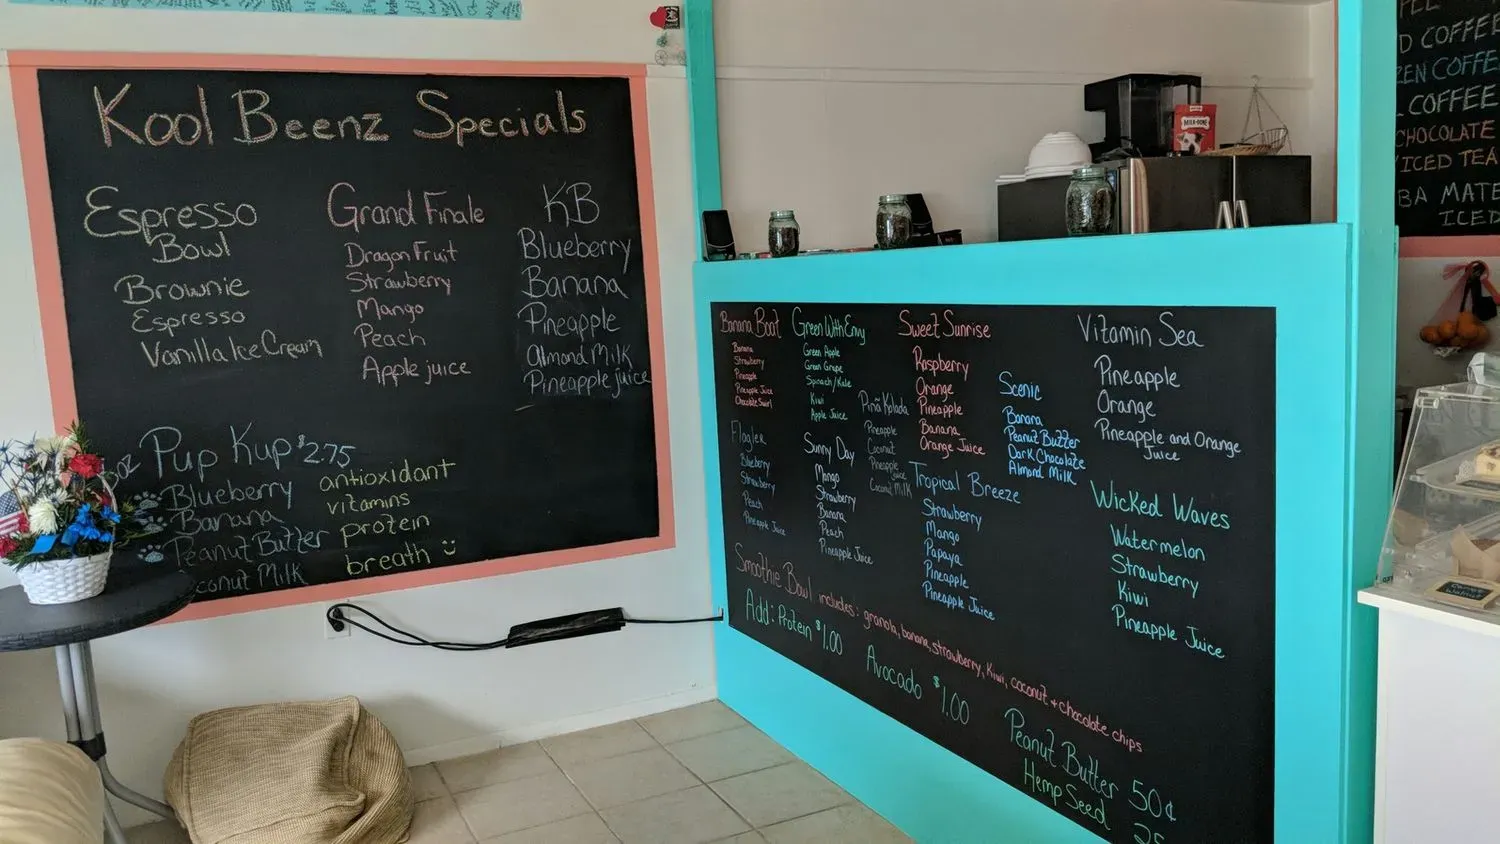 Kool Beenz Specials
Espresso
Bowl
Brownie
Espresso
Vanilla Ice Cream
Grand Finale
Dragon Fruit
Strawberry
Mango
Peach
Apple juice
KB
Blueberry
Banana
Pineapple
Almond Milk
Pineapple juice
Pup Kup $2.75
Blueberry
Banana
Peanut Butter
conut Milk
antioxidant
vitamins
protein
breath
Banana Boat
Banana
Strawberry
Pineapple
Pineapple Juice
Chocolate Swirl
Flagler
Blueberry
Strawberry
Peach
Pineapple Juice
Green With Envy
Green Apple
Green Grape
Spinach/Kale
Kiwi
Apple Juice
Sunny Day
Mango
Strawberry
Banana
Peach
Pineapple Juice
Piñã Kolada
Pineapple
Coconut
Pineapple
Juice
Coconut Milk
Sweet Sunrise
Raspberry
Orange
Pineapple
Banana
Orange Juice
Tropical Breeze
Strawberry
Mango
Papaya
Pineapple
Pineapple Juice
Scenic
Banana
Peanut Butter
Dark Chocolate
Almond Milk
Vitamin Sea
Pineapple
Orange
Pineapple and Orange
Juice
Wicked Waves
Watermelon
Strawberry
Kiwi
Pineapple Juice
Smoothie Bowl includes: granola, banana, strawberry, Kiwi, coconut + chocolate chips
Add: Protein $1.00
Avocado $1.00
Peanut Butter 50¢
Hemp Seed 25
MILK-BONE
D COFFEE
ZEN COFFE
COFFEE
CHOCOLATE
ICED TEA
BA MATE
ICED